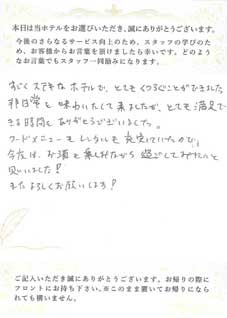 本日は当ホテルをお選びいただき、誠にありがとうございます。
今後のさらなるサービス向上のため、スタッフの学びのため、お客様からお言葉を頂けましたら幸いです。どのようなお言葉でもスタッフ一同励みになります。
すごくステキなホテルで、とてもくつろぐことができました。
非日常を味わいたくて来ましたが、とても満足で
きる時間をありがとうございました。
フードメニューもレンタルも充実していたので、
今度は、お酒を楽しみながら過ごしてみたいと
思いました！
またよろしくお願いします！
ご記入いただき誠にありがとうございます。お帰りの際に
フロントにお持ち下さい。※このまま置いてお帰りになら
れても構いません。